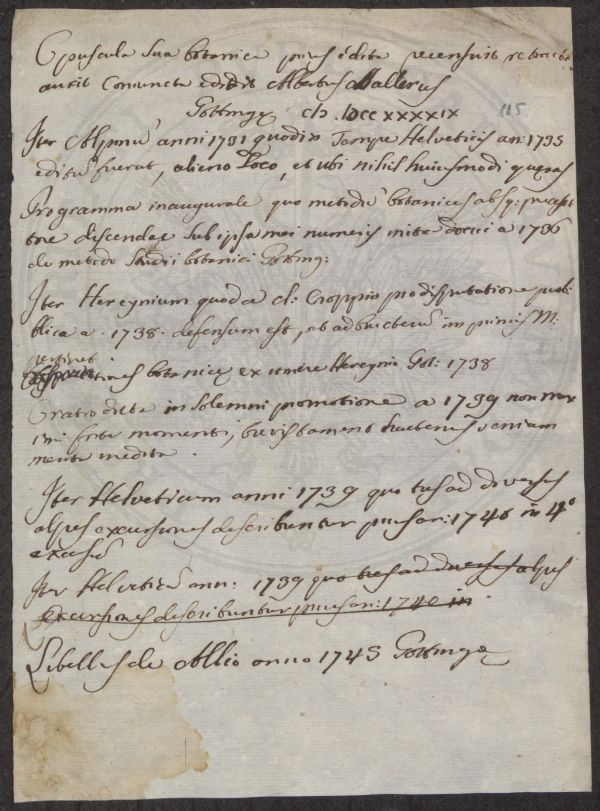 Opuscula sua botanica prius edita recensuit retracta
auxit coniuncta edidit Albertus Hallerus
Gottingę cIɔ. IƆCCXXXXIX 115
Iter Alpinū anni 1731 quod in Tempe Helveticis an: 1735
editū fuerat, alieno loco, et ubi nihil huiusmodi quęras
Programma inaugurale quo metodū botanices absq: pręcep
tore discendae sub ipsa mei muneris initia docui a 1736
de metodo studii botanici Gotting:
Iter Hercynium quod a cl: Croppio pro disputatione pub
blica a. 1738. defensum est, et ad bructerū in primis M:
pertinet
botanicę ex itinere Hercynio Got: 1738
Oratio dicta in solemni promotione a 1739 non max
imi forte momenti, brevis tamen et hactenus
inedita.
Iter Helveticum anni 1739 quo tres ad diversas
alpes excursiones describuntur prius an: 1740 in 4º
excusū
Iter Helveticū ann: 1739 quo tres ad diversas alpes
excursiones describuntur prius an: 1740 in
Libellus de Allio anno 1745 Gottingę